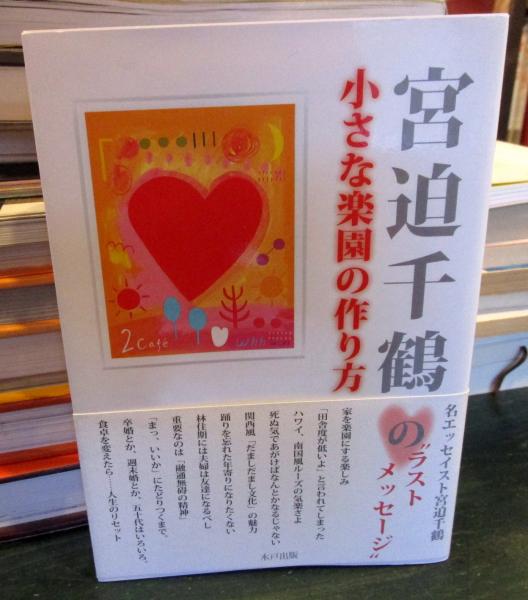 宮迫千鶴
小さな楽園の作り方
2 Café
名エッセイスト宮迫千鶴
の"ラスト
メッセージ"
家を楽園にする楽しみ
「田舎度が低いよ」と言われてしまった
ハワイ、南国風ルーズの気楽さよ
死ぬ気であがけばなんとかなるじゃない
関西風「だましだまし文化」の魅力
踊りを忘れた年寄りになりたくない
林住期には夫婦は友達になるべし
重要なのは「融通無碍の精神」
「まっ、いいか」にたどりつくまで、
卒婚とか、週末婚とか、五十代はいろいろ、
食卓を変えたら……人生のリセット
水戸出版